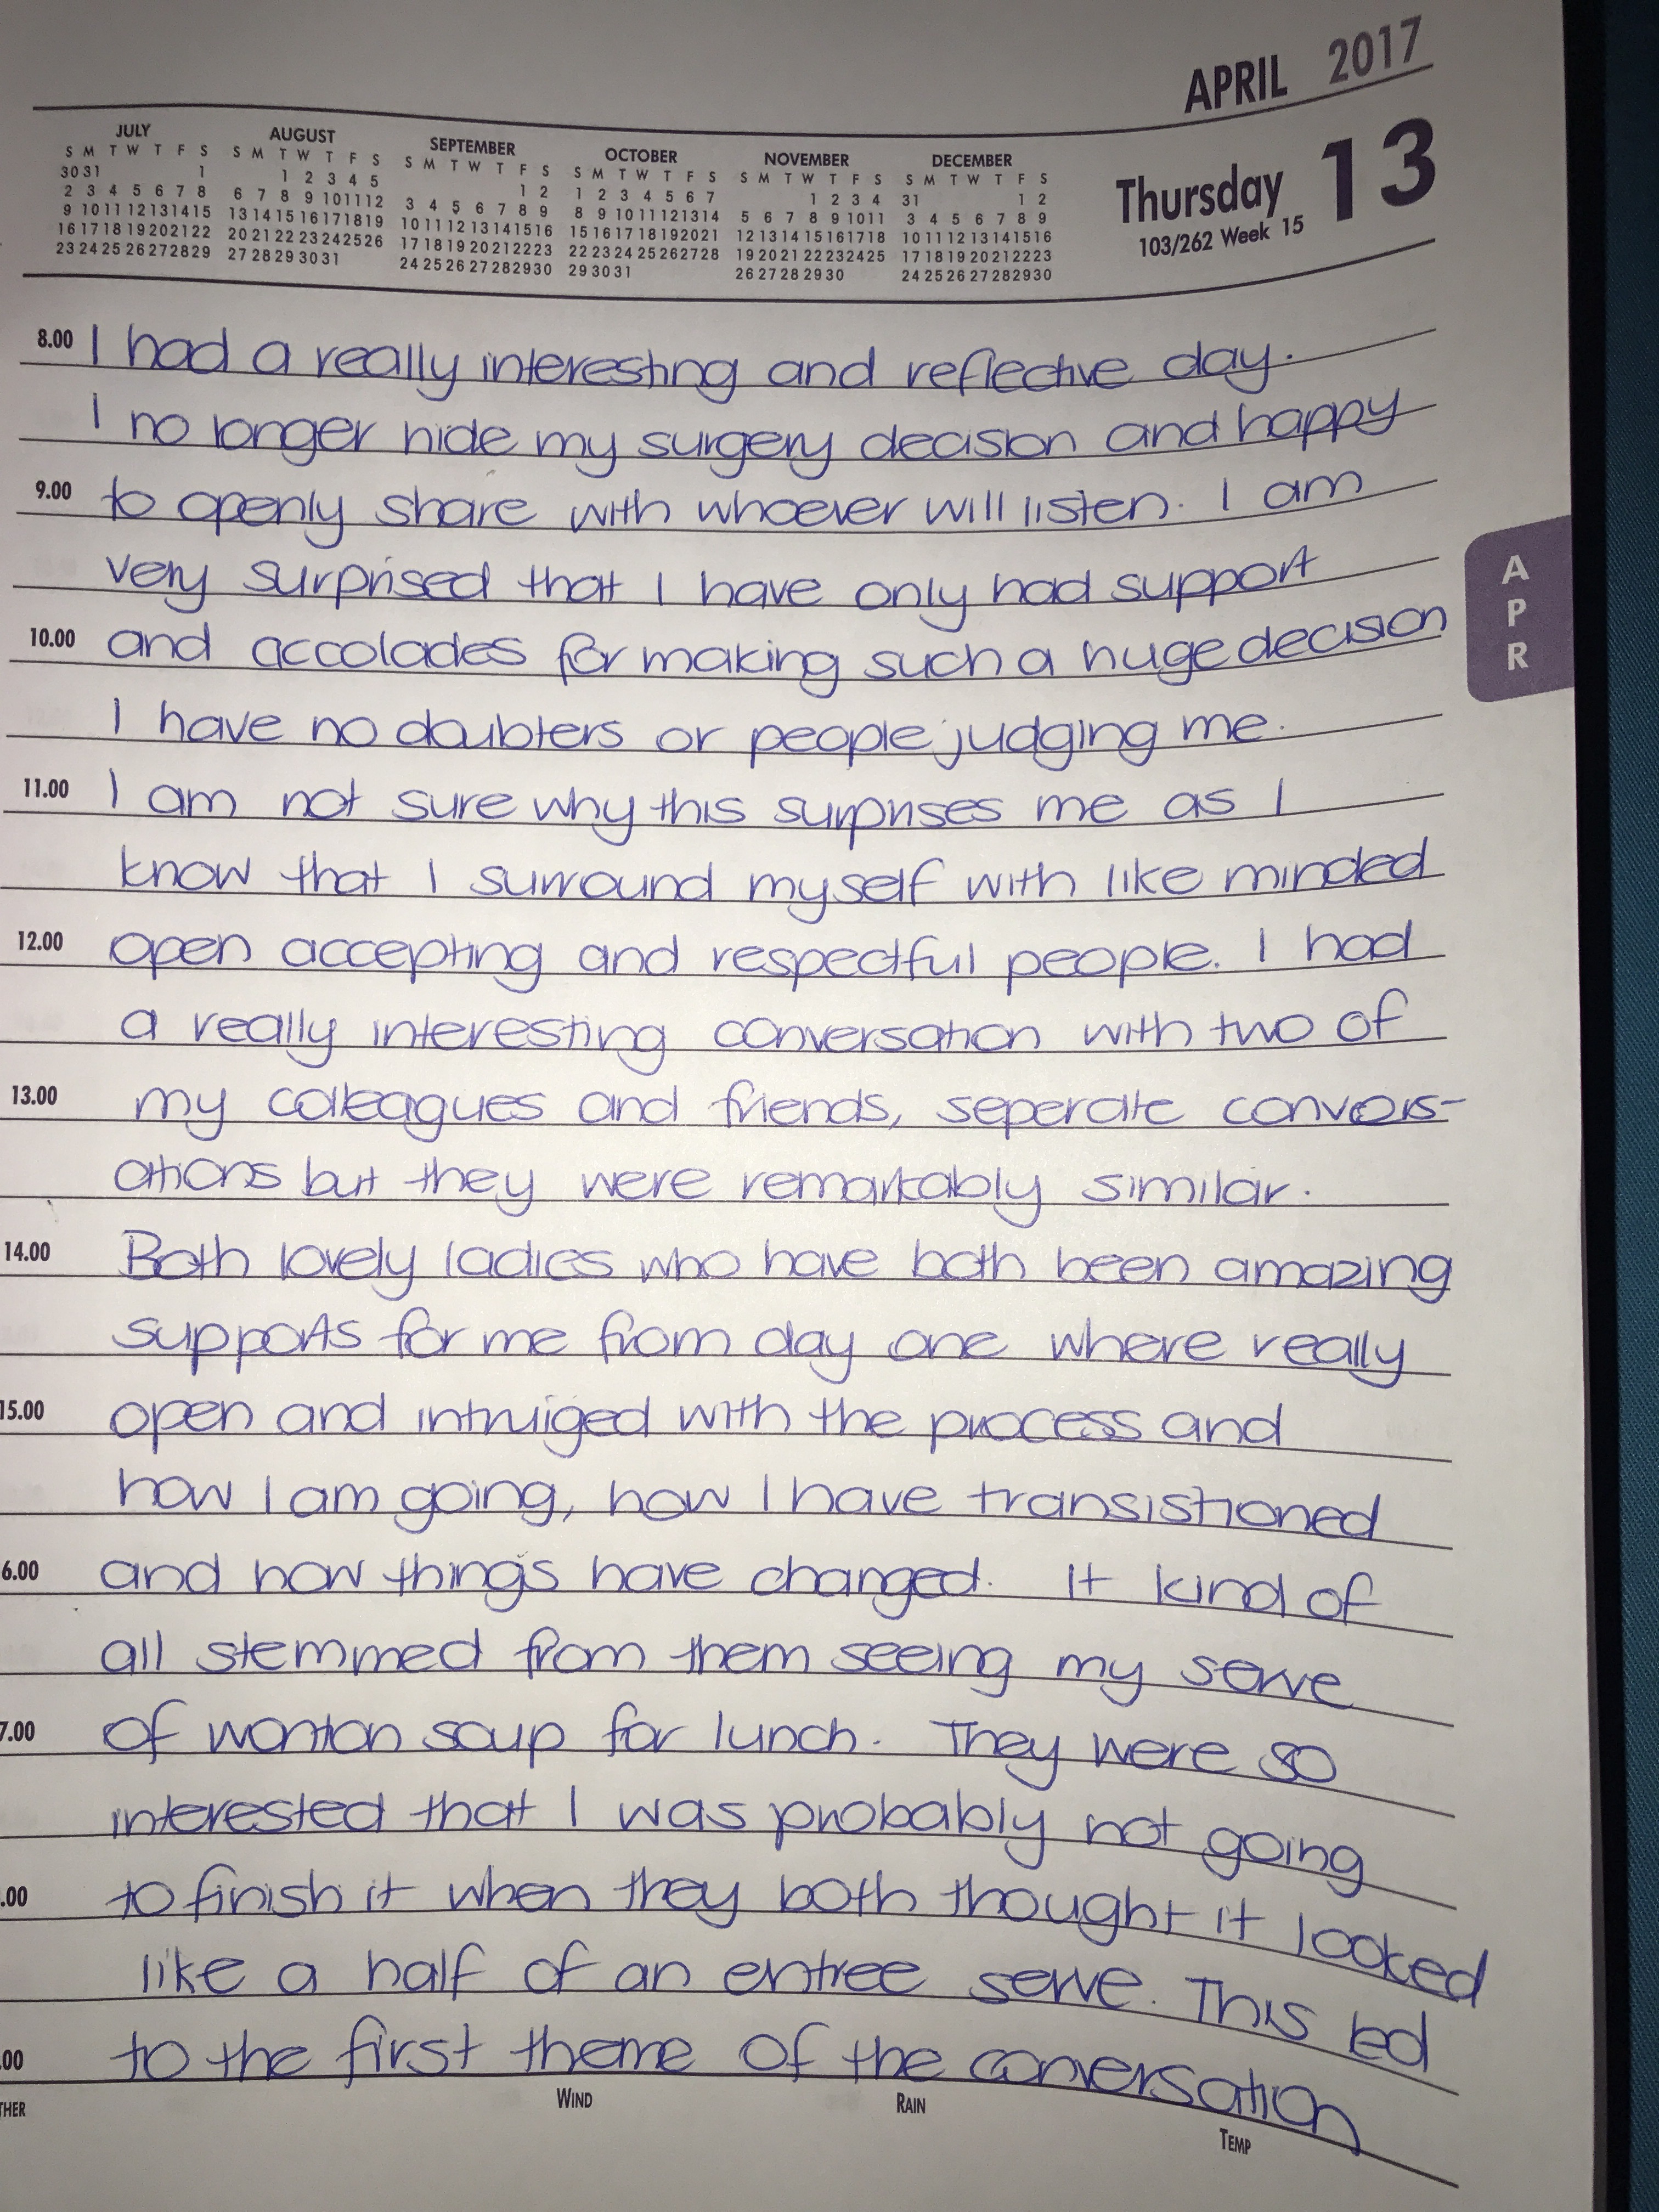 APRIL 2017
Thursday 13
103/262 Week 15
JULY
S M T W T F S
30 31 1
2 3 4 5 6 7 8
9 10 11 12 13 14 15
16 17 18 19 20 21 22
23 24 25 26 27 28 29
AUGUST
S M T W T F S
1 2 3 4 5
6 7 8 9 10 11 12
13 14 15 16 17 18 19
20 21 22 23 24 25 26
27 28 29 30 31
SEPTEMBER
S M T W T F S
1 2
3 4 5 6 7 8 9
10 11 12 13 14 15 16
17 18 19 20 21 22 23
24 25 26 27 28 29 30
OCTOBER
S M T W T F S
1 2 3 4 5 6 7
8 9 10 11 12 13 14
15 16 17 18 19 20 21
22 23 24 25 26 27 28
29 30 31
NOVEMBER
S M T W T F S
1 2 3 4
5 6 7 8 9 10 11
12 13 14 15 16 17 18
19 20 21 22 23 24 25
26 27 28 29 30
DECEMBER
S M T W T F S
31 1 2
3 4 5 6 7 8 9
10 11 12 13 14 15 16
17 18 19 20 21 22 23
24 25 26 27 28 29 30
8.00 I had a really interesting and reflective day.
I no longer hide my surgery decision and happy
9.00 to openly share with whoever will listen. I am
very surprised that I have only had support
10.00 and accolades for making such a huge decision
I have no doubters or people judging me.
11.00 I am not sure why this surprises me as I
know that I surround myself with like minded
12.00 open accepting and respectful people. I had
a really interesting conversation with two of
13.00 my colleagues and friends, seperate convers-
ations but they were remarkably similar.
14.00 Both lovely ladies who have both been amazing
supports for me from day one where really
15.00 open and intruiged with the process and
how I am going, how I have transistioned
6.00 and how things have changed. It kind of
all stemmed from them seeing my serve
7.00 of wonton soup for lunch. They were so
interested that I was probably not going
.00 to finish it when they both thought it looked
like a half of an entree serve. This led
.00 to the first theme of the conversation
THER WIND RAIN TEMP
APR